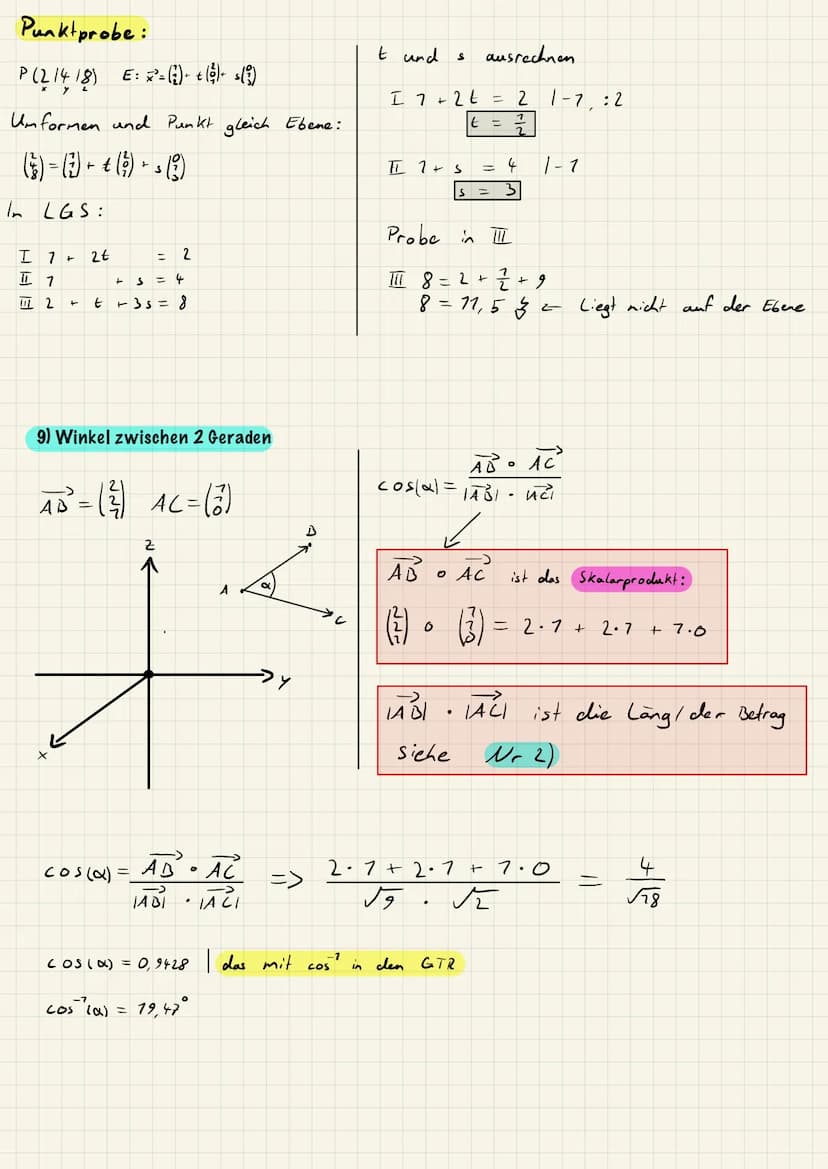 Punktprobe:
P(2|4|8) E: x⃗ = (1 1 2) + t(2 0 1) + s(0 1 3)
x y z
Umformen und Punkt gleich Ebene:
(2 4 8) = (1 1 2) + t(2 0 1) + s(0 1 3)
In LGS:
I 1 + 2t = 2
II 1 + s = 4
III 2 + t + 3s = 8
t und s ausrechnen
I 1 + 2t = 2 |-1, :2
t = 1/2
II 1 + s = 4 |-1
s = 3
Probe in III
III 8 = 2 + 1/2 + 9
8 = 11,5 ↯ ← Liegt nicht auf der Ebene
9) Winkel zwischen 2 Geraden
AB⃗ = (2 2 1) AC = (1 1 0)
z
B
A α
C
y
x
cos(α) = AB⃗ ∘ AC⃗ / |AB⃗| · |AC⃗|
AB⃗ ∘ AC⃗ ist das Skalarprodukt:
(2 2 1) ∘ (1 1 0) = 2·1 + 2·1 + 1·0
|AB⃗| · |AC⃗| ist die Läng/der Betrag
siehe Nr 2)
cos(α) = AB⃗ ∘ AC⃗ / |AB⃗| · |AC⃗| => 2·1 + 2·1 + 1·0 / √9 · √2 = 4 / √18
cos(α) = 0,9428 | das mit cos⁻¹ in den GTR
cos⁻¹(α) = 19,47°